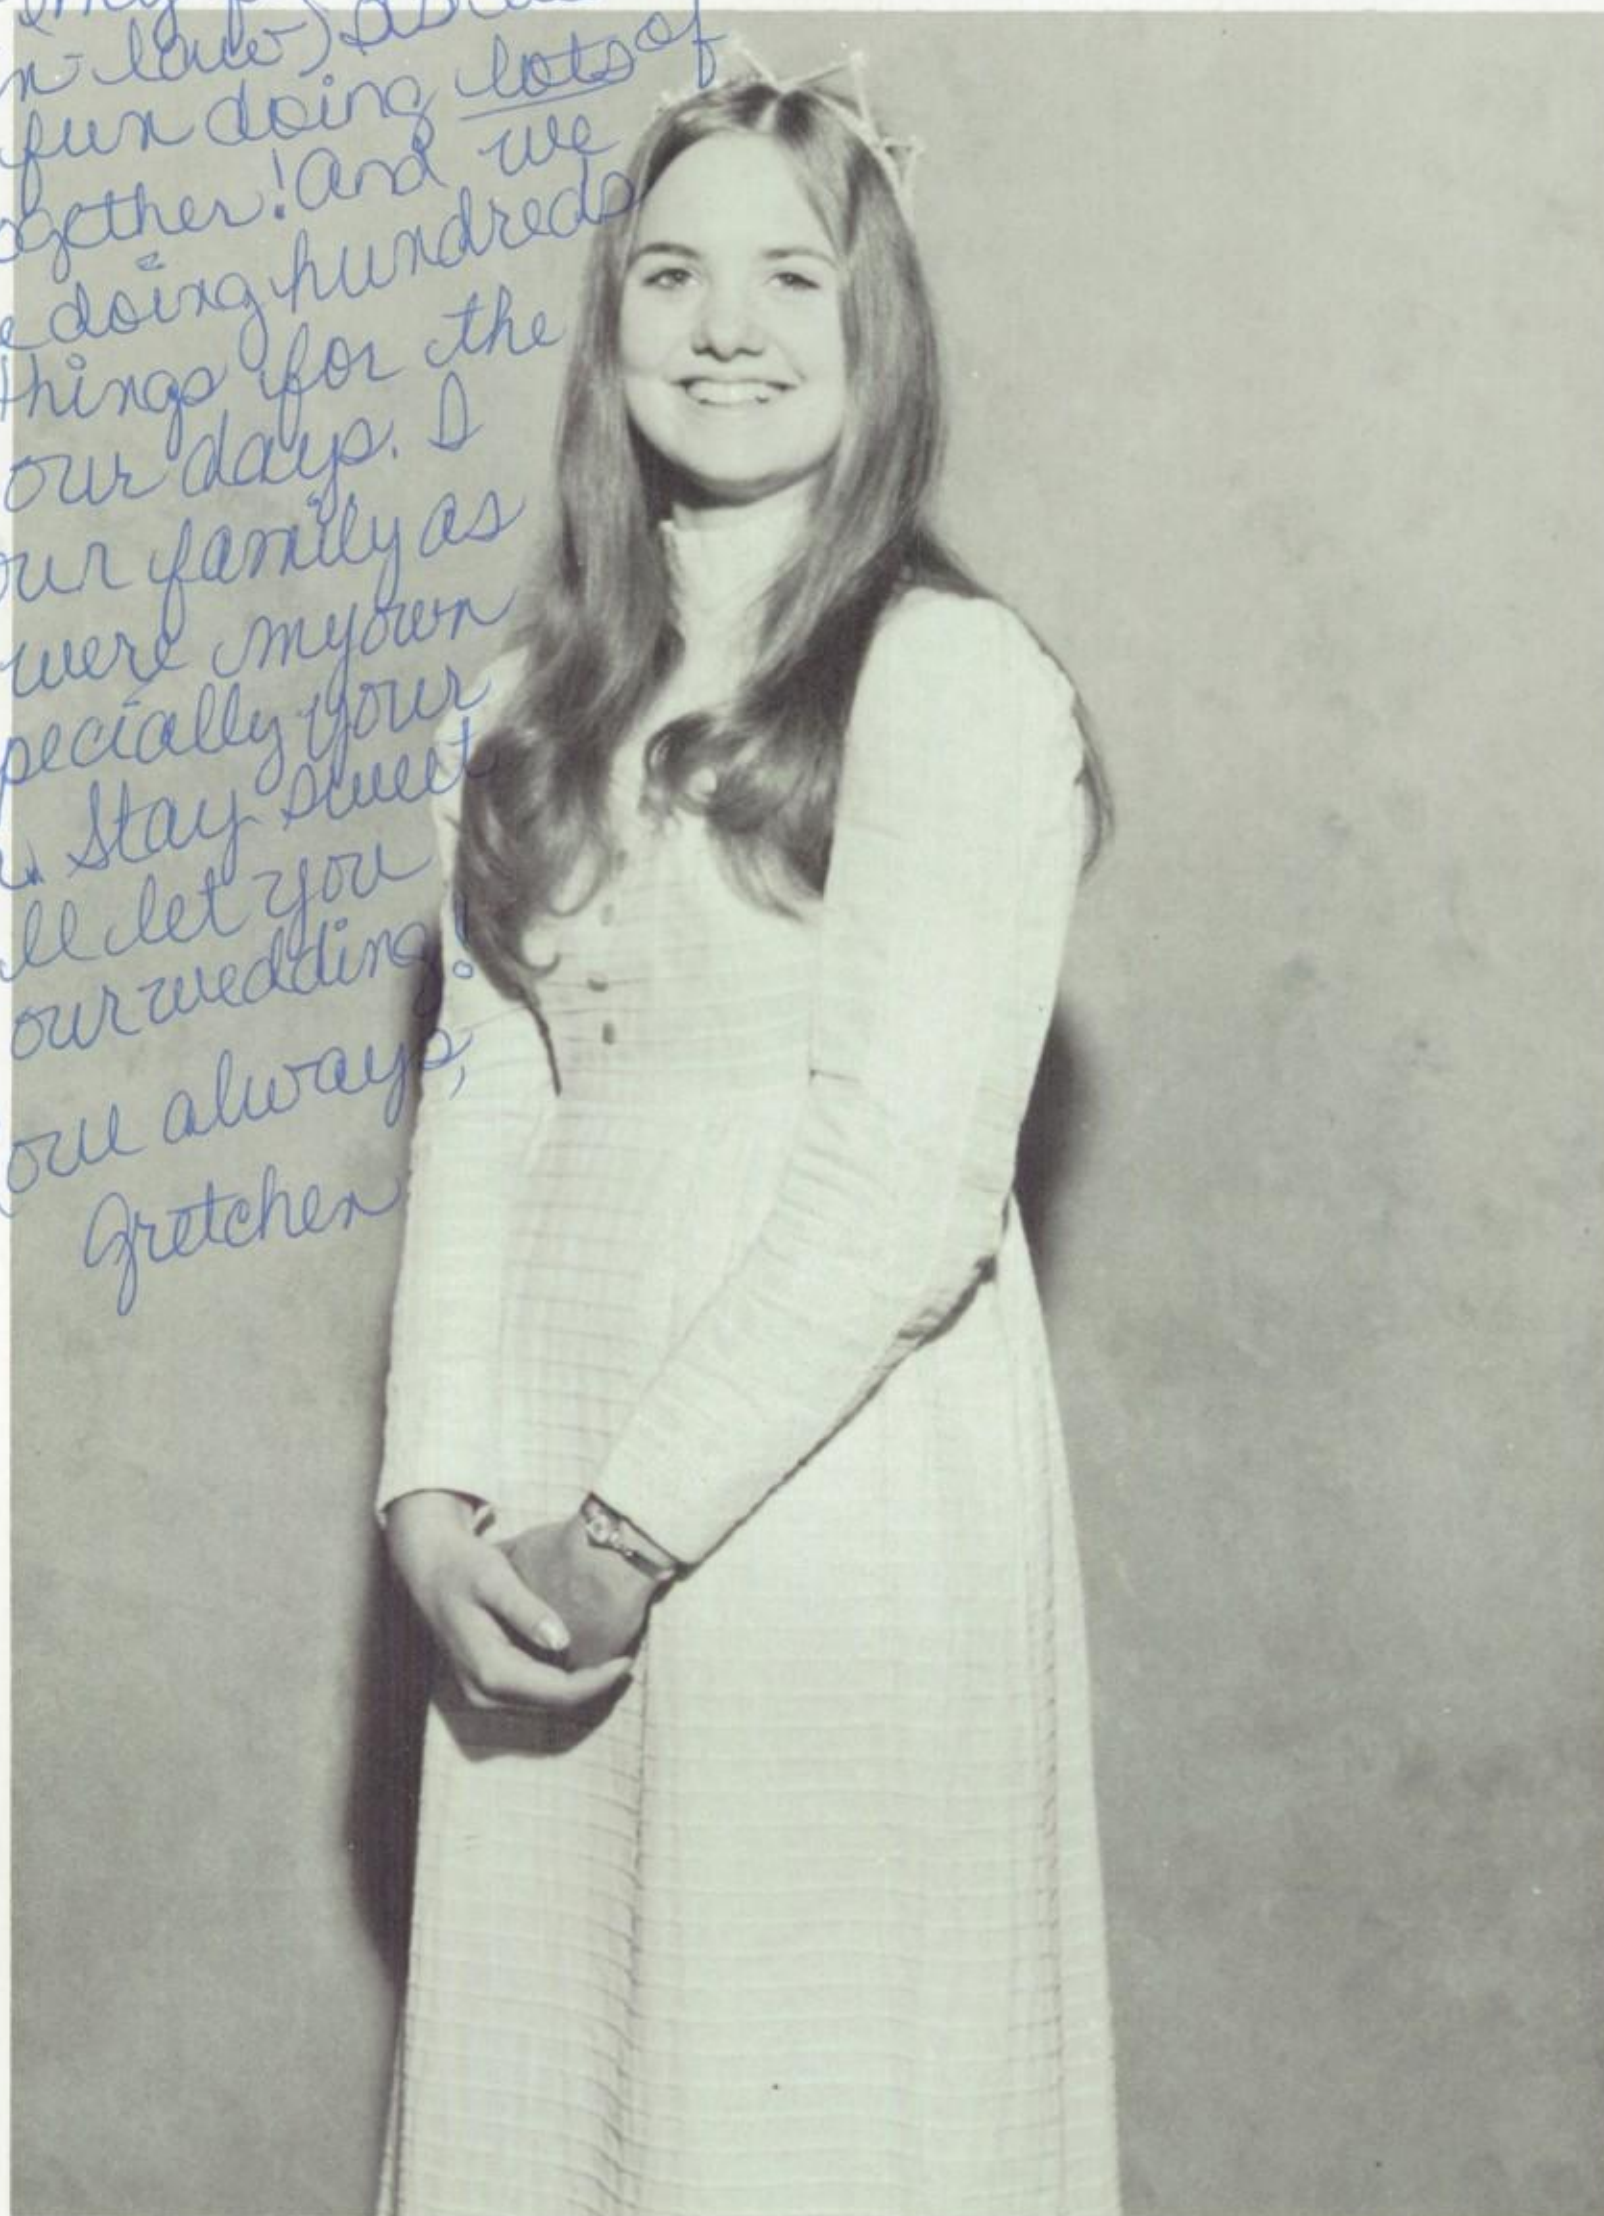 my
n law) sister
fun doing lots of
ogether! And we
e doing hundreds
things for the
our days. I
our family as
were my own
pecially your
. Stay sweet
ll let you
our wedding!
ove always,
Gretchen